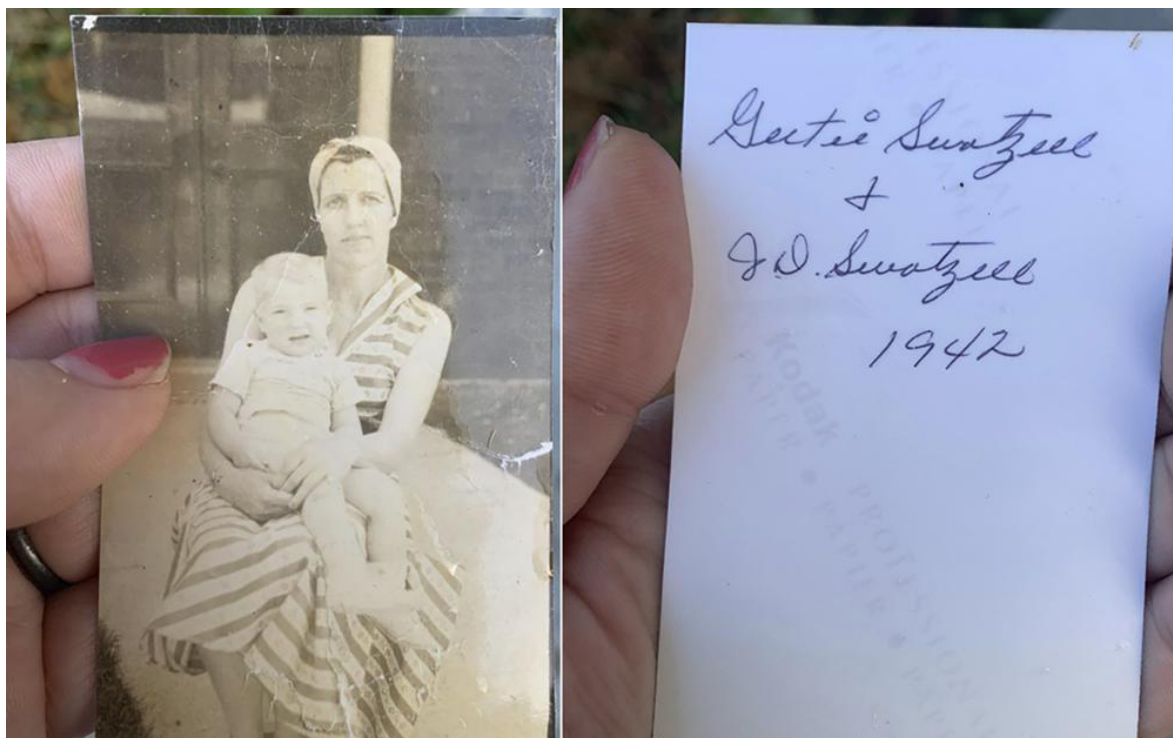 Gertie Swatzell
&
J.D. Swatzell
1942
Kodak PROFESSIONAL
PAPER • PAPIER •